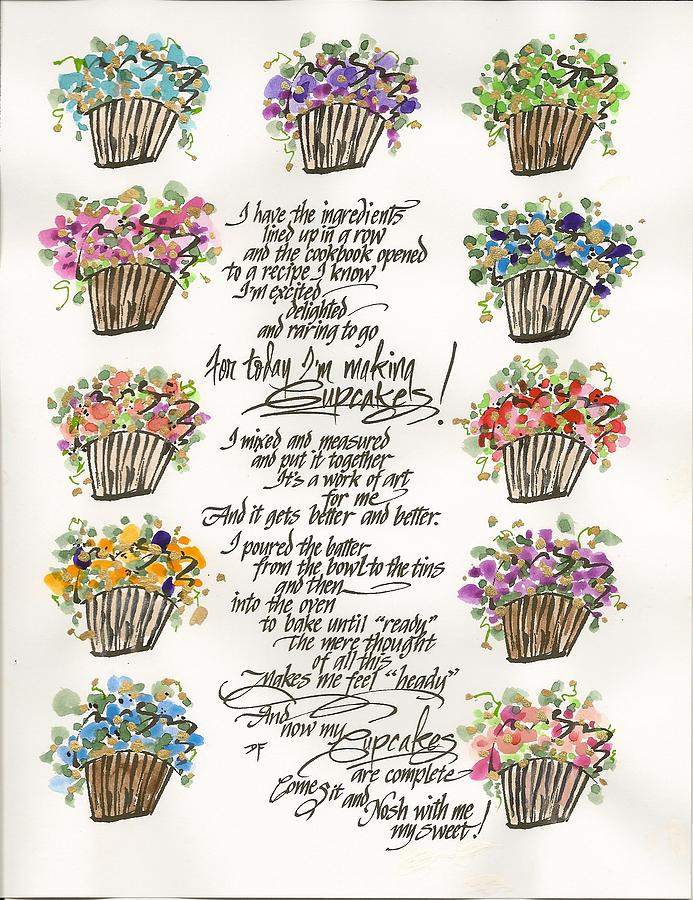 I have the ingredients
lined up in a row
and the cookbook opened
to a recipe I know
I'm excited
delighted
and raring to go
For today I'm making
Cupcakes!
I mixed and measured
and put it together
It's a work of art
for me
And it gets better and better.
I poured the batter
from the bowl to the tins
and then
into the oven
to bake until "ready"
The mere thought
of all this
Makes me feel "heady"
And
now my
DF
Cupcakes
are complete
Come Sit and
Nosh with me
my sweet!